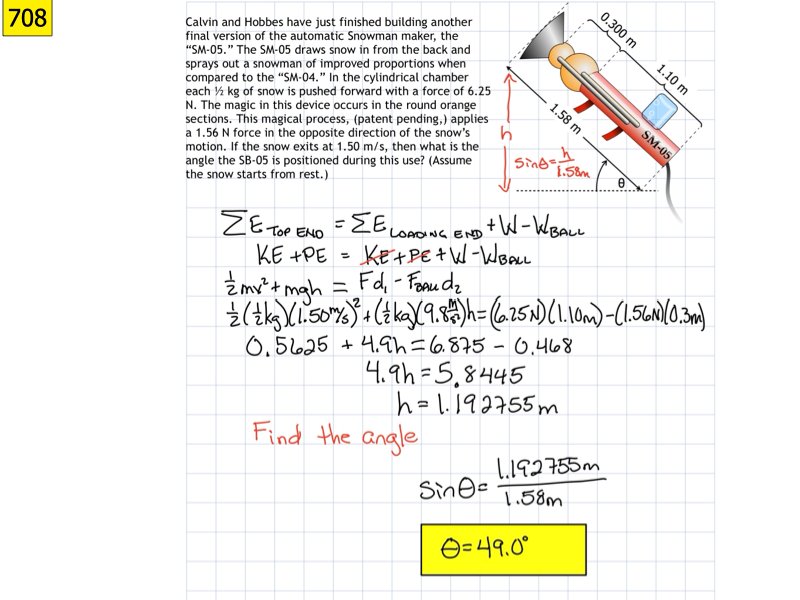 708
Calvin and Hobbes have just finished building another
final version of the automatic Snowman maker, the
“SM-05.” The SM-05 draws snow in from the back and
sprays out a snowman of improved proportions when
compared to the “SM-04.” In the cylindrical chamber
each ½ kg of snow is pushed forward with a force of 6.25
N. The magic in this device occurs in the round orange
sections. This magical process, (patent pending,) applies
a 1.56 N force in the opposite direction of the snow’s
motion. If the snow exits at 1.50 m/s, then what is the
angle the SB-05 is positioned during this use? (Assume
the snow starts from rest.)
0.300 m
1.10 m
1.58 m
SM-05
h
sinθ=h/1.58m
θ
ΣE TOP END = ΣE LOADING END + W - WBALL
KE + PE = KE + PE + W - WBALL
½mv² + mgh = Fd₁ - FBALL d₂
½(½kg)(1.50m/s)² + (½kg)(9.8m/s²)h = (6.25N)(1.10m) - (1.56N)(0.3m)
0.5625 + 4.9h = 6.875 - 0.468
4.9h = 5.8445
h = 1.192755m
Find the angle
sinθ = 1.192755m/1.58m
θ = 49.0°